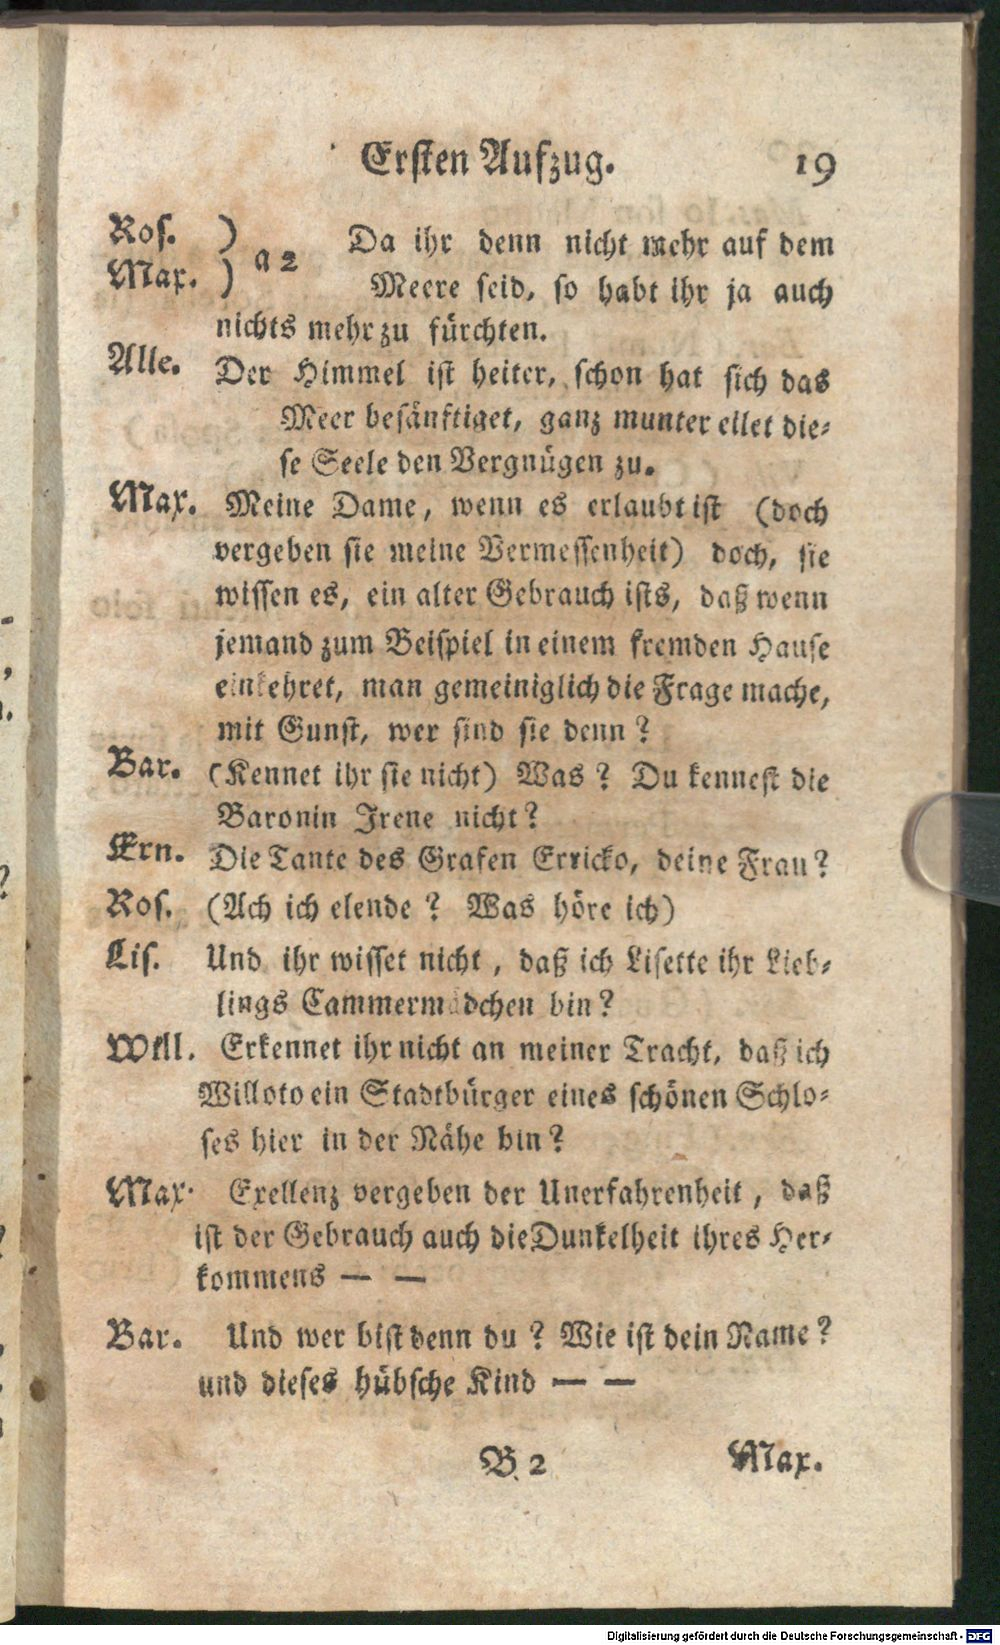 Ersten Aufzug. 19
Ros. ) a 2 Da ihr denn nicht mehr auf dem
Max. ) Meere seid, so habt ihr ja auch
nichts mehr zu fürchten.
Alle. Der Himmel ist heiter, schon hat sich das
Meer besänftiget, ganz munter eilet die-
se Seele den Vergnügen zu.
Max. Meine Dame, wenn es erlaubt ist (doch
vergeben sie meine Vermessenheit) doch, sie
wissen es, ein alter Gebrauch ists, daß wenn
jemand zum Beispiel in einem fremden Hause
einkehret, man gemeiniglich die Frage mache,
mit Gunst, wer sind sie denn?
Bar. (Kennet ihr sie nicht) Was? Du kennest die
Baronin Irene nicht?
Ern. Die Tante des Grafen Erricko, deine Frau?
Ros. (Ach ich elende? Was höre ich)
Lis. Und ihr wisset nicht, daß ich Lisette ihr Lieb-
lings Cammermädchen bin?
Will. Erkennet ihr nicht an meiner Tracht, daß ich
Willoto ein Stadtbürger eines schönen Schlo-
ses hier in der Nähe bin?
Max. Exellenz vergeben der Unerfahrenheit, daß
ist der Gebrauch auch die Dunkelheit ihres Her-
kommens — —
Bar. Und wer bist denn du? Wie ist dein Name?
und dieses hübsche Kind — —
B 2 Max.
Digitalisierung gefördert durch die Deutsche Forschungsgemeinschaft - DFG